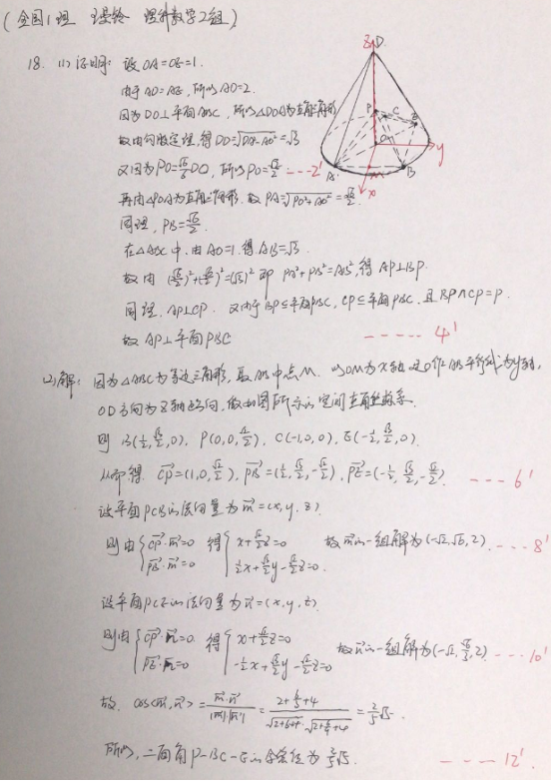 (全国1理 理科数学2组)
18. (1)证明: 设OA=OE=1.
由于AD=AE, 所以AD=2.
因为DO⊥平面ABC, 所以△DOA为直角三角形
故由勾股定理, 得DO=√(DA²-AO²)=√3
又因为PO=√6/6 DO, 所以PO=√2/2 ---2'
再由△POA为直角三角形, 故PA=√(PO²+AO²)=√6/2.
同理, PB=√6/2.
在△ABC中, 由AO=1. 得AB=√3.
故由(√6/2)²+(√6/2)²=(√3)² 即PA²+PB²=AB², 得AP⊥BP.
同理, AP⊥CP. 又由于BP⊆平面PBC, CP⊆平面PBC, 且BP∩CP=P.
故AP⊥平面PBC ----- 4'
(2)解: 因为△ABC为等边三角形, 取AB中点M. 以OM为x轴 过O作AB平行线为y轴,
OD方向为z轴方向, 做如图所示的空间直角坐标系.
则B(1/2,√3/2,0), P(0,0,√2/2), C(-1,0,0), E(-1/2,√3/2,0).
从而得. CP→=(1,0,√2/2), PB→=(1/2,√3/2,-√2/2), PE→=(-1/2,√3/2,-√2/2). --- 6'
设平面PCB的法向量为m→=(x,y,z)
则由{CP→·m→=0 PB→·m→=0 得{x+√2/2z=0 1/2x+√3/2y-√2/2z=0. 故m→的一组解为(-√2,√6,2). --- 8'
设平面PCE的法向量为n→=(x,y,z).
则由{CP→·n→=0 PE→·n→=0 得{x+√2/2z=0 -1/2x+√3/2y-√2/2z=0 故n→的一组解为(-√2,√6/3,2) --- 10'
故. cos<m→,n→>=m→·n→/|m→||n→|=(2+6/3+4)/(√(2+6+4)·√(2+6/9+4))=2/5√5.
所以, 二面角P-BC-E的余弦值为2/5√5. --- 12'
z
D
P
C
E
O
y
A
M
B
x